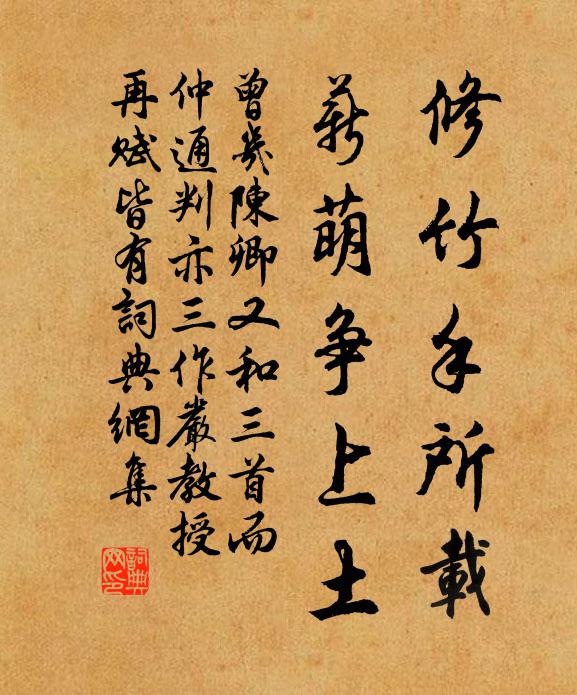 修竹手所載
新萌争上土
曾㡬陳卿又和三首而
仲通判亦三作嚴教授
再賦皆有詞典網集
詞典网印